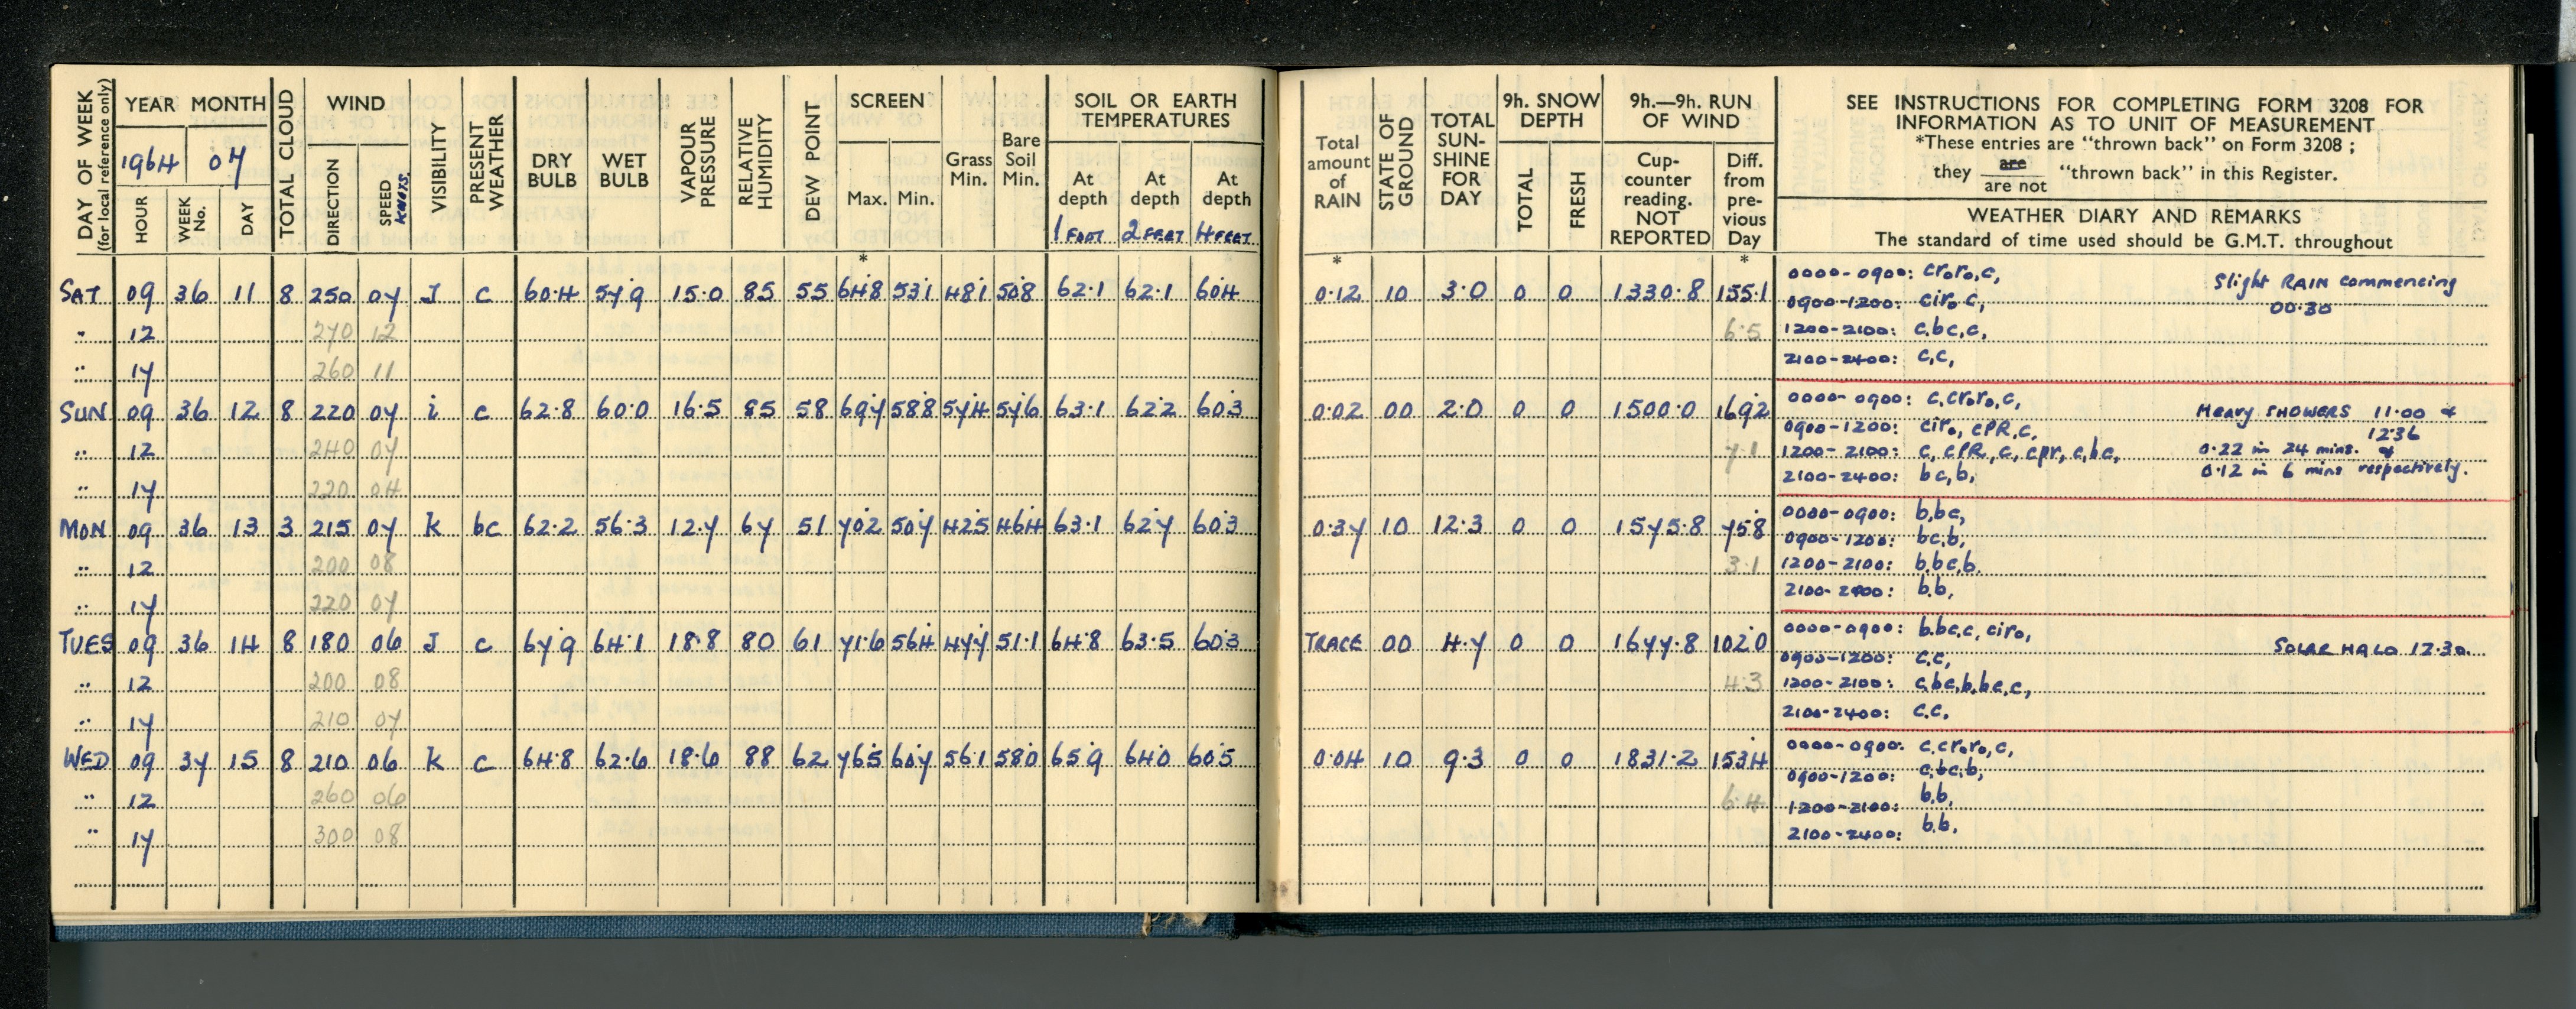 DAY OF WEEK
(for local reference only)
YEAR MONTH
1964 07
HOUR
WEEK No.
DAY
TOTAL CLOUD
WIND
DIRECTION
SPEED KNOTS.
VISIBILITY
PRESENT WEATHER
DRY BULB
WET BULB
VAPOUR PRESSURE
RELATIVE HUMIDITY
DEW POINT
SCREEN
Max. Min.
*
Grass Min.
Bare Soil Min.
SOIL OR EARTH TEMPERATURES
At depth 1 FOOT
At depth 2 FEET
At depth 4 FEET
Total amount of RAIN
*
STATE OF GROUND
TOTAL SUN-SHINE FOR DAY
9h. SNOW DEPTH
TOTAL
FRESH
9h.—9h. RUN OF WIND
Cup-counter reading. NOT REPORTED
Diff. from pre-vious Day
*
SEE INSTRUCTIONS FOR COMPLETING FORM 3208 FOR
INFORMATION AS TO UNIT OF MEASUREMENT
*These entries are "thrown back" on Form 3208 ;
they are / are not "thrown back" in this Register.
WEATHER DIARY AND REMARKS
The standard of time used should be G.M.T. throughout
SAT 09 36 11 8 250 07 J c 60.4 57.9 15.0 85 55 64.8 53.1 48.1 50.8 62.1 62.1 60.4 0.12 10 3.0 0 0 1330.8 155.1
0000-0900: cr₀r₀,c,
Slight RAIN commencing
00.30
0900-1200: cir₀c,
" 12 270 12 6.5
1200-2100: c,bc,c,
" 17 260 11
2100-2400: c,c,
SUN 09 36 12 8 220 07 i c 62.8 60.0 16.5 85 58 69.7 58.8 57.4 57.6 63.1 62.2 60.3 0.02 00 2.0 0 0 1500.0 169.2
0000-0900: c,cr₀r₀,c,
Heavy SHOWERS 11.00 &
12.36
0900-1200: cir₀, cPR,c,
" 12 240 07 7.1
1200-2100: c, cPR, c, cpr, c,bc,
0.22 in 24 mins. &
" 17 220 04
2100-2400: bc,b,
0.12 in 6 mins respectively.
MON 09 36 13 3 215 07 k bc 62.2 56.3 12.7 67 51 70.2 50.7 42.5 46.4 63.1 62.7 60.3 0.37 10 12.3 0 0 1575.8 75.8
0000-0900: b,bc,
0900-1200: bc,b,
" 12 200 08 3.1
1200-2100: b,bc,b,
" 17 220 07
2100-2400: b,b,
TUES 09 36 14 8 180 06 J c 67.9 64.1 18.8 80 61 71.6 56.4 47.7 51.1 64.8 63.5 60.3 TRACE 00 4.7 0 0 1677.8 102.0
0000-0900: b,bc,c, cir₀,
SOLAR HALO 12.30.
0900-1200: c,c,
" 12 200 08 4.3
1200-2100: c,bc,b,bc,c,
" 17 210 07
2100-2400: c,c,
WED 09 37 15 8 210 06 k c 64.8 62.6 18.6 88 62 76.5 60.7 56.1 58.0 65.9 64.0 60.5 0.04 10 9.3 0 0 1831.2 153.4
0000-0900: c,cr₀r₀,c,
0900-1200: c,bc,b,
" 12 260 06 6.4
1200-2100: b,b,
" 17 300 08
2100-2400: b,b,